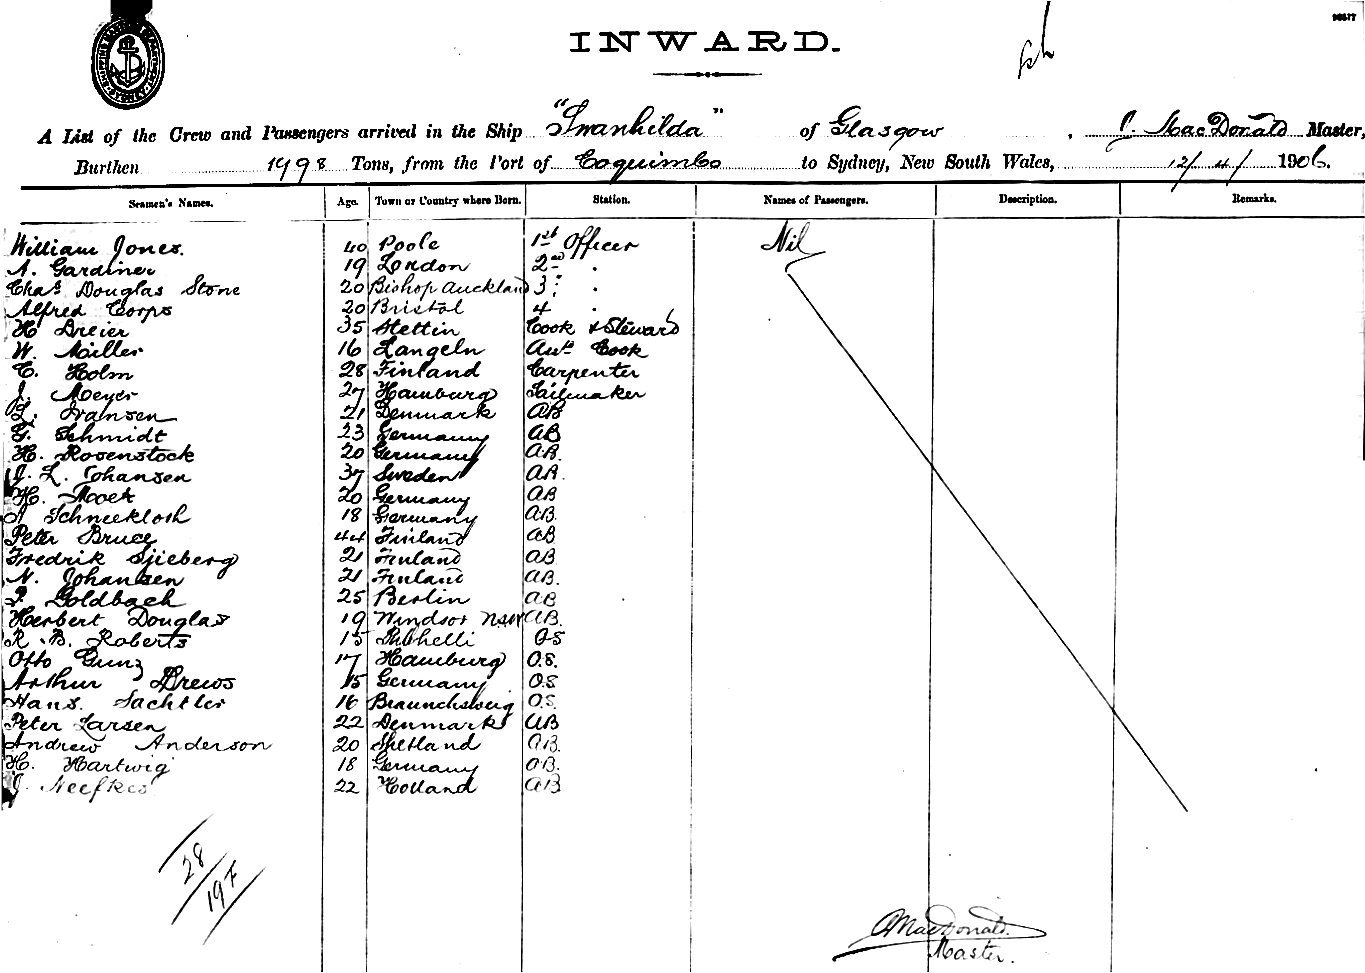 SHIPPING MASTER'S DEPARTMENT SYDNEY
INWARD.
A List of the Crew and Passengers arrived in the Ship "Swanhilda" of Glasgow, C. MacDonald Master,
Burthen 1998 Tons, from the Port of Coquimbo to Sydney, New South Wales, 12/4/1906.
Seamen's Names. Age. Town or Country where Born. Station. Names of Passengers. Description. Remarks.
William Jones. 40 Poole 1st Officer Nil
A. Gardiner 19 London 2nd "
Chas Douglas Stone 20 Bishop Auckland 3 " "
Alfred Corps 20 Bristol 4 "
H Dreier 35 Stettin Cook & Steward
W. Miller 16 Langeln Asst Cook
C. Holm 28 Finland Carpenter
J. Meyer 27 Hamburg Sailmaker
21 Denmark AB
G. Schmidt 23 Germany AB
H. Rosenstock 20 Germany A.B.
J. L. Johansen 37 Sweden AB.
H. 20 Germany AB
Schneekloth 18 Germany AB.
Peter Bruce 44 Finland AB
Fredrik Sjieberg 21 Finland AB.
N. Johansen 21 Finland AB.
Goldbach 25 Berlin AB
Herbert Douglas 19 Windsor NSW AB.
R. B. Roberts 15 Pullhelli OS
Otto Gunz 17 Hamburg O.S.
Arthur Drews 15 Germany OS
Hans. Sachtler 16 Braunchsweig O.S.
Peter Larsen 22 Denmark AB
Andrew Anderson 20 Shetland AB.
H. Hartwig 18 Germany AB.
J. Neefkes 22 Holland AB
28
19 F
MacDonald.
Master.